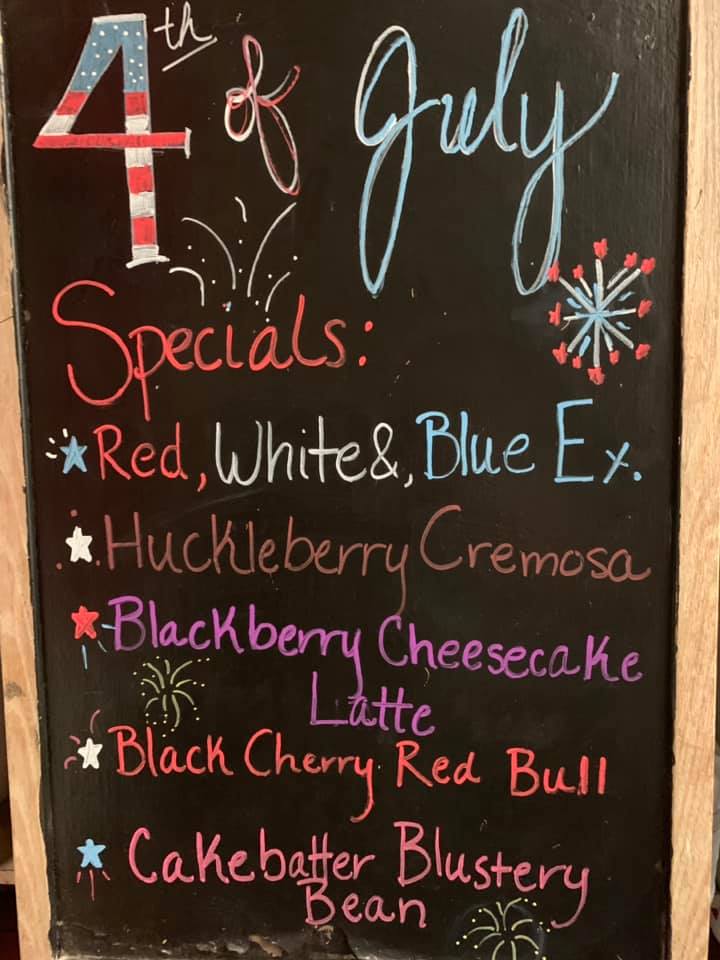 4th of July
Specials:
Red, White &, Blue Ex.
Huckleberry Cremosa
Blackberry Cheesecake
Latte
Black Cherry Red Bull
Cakebatter Blustery
Bean